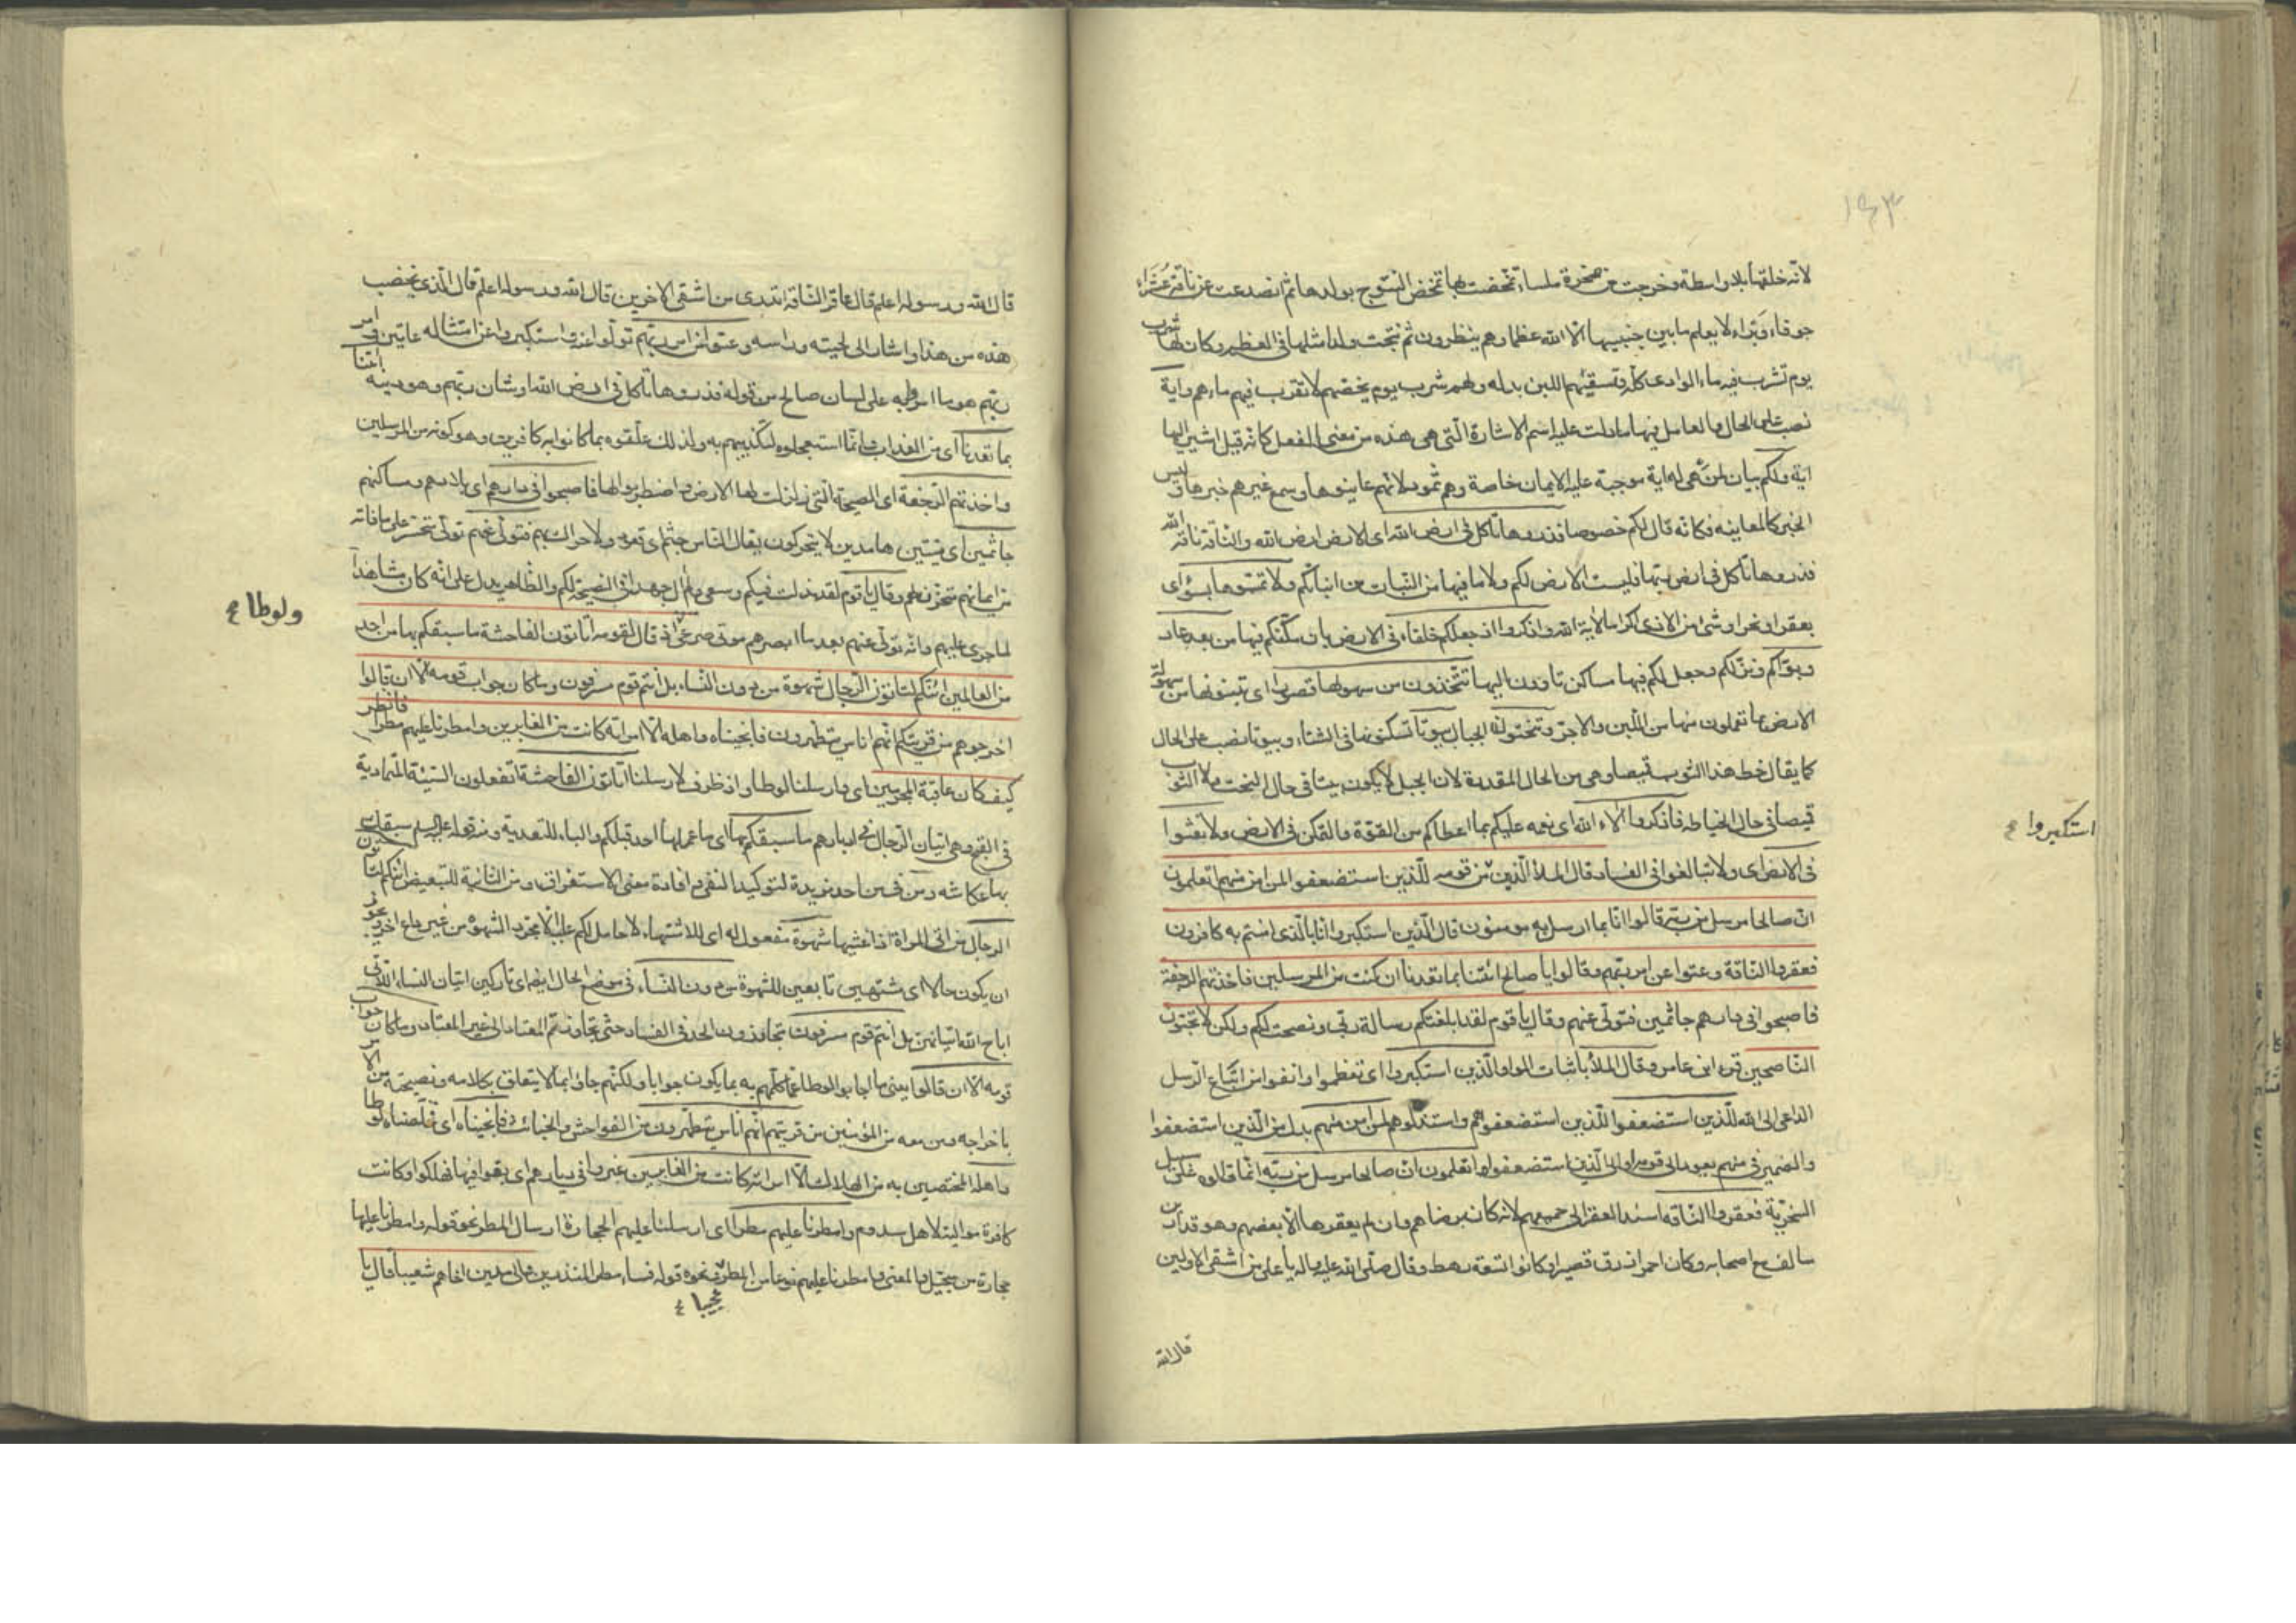 ١٤٣
لانه خلقها بلا واسطة وخرجت من صخرة ملساء تمخضت بها تمخض النتوج بولدها ثم انصدعت عن ناقة عشراء
جوفاء وبراء لا يعلم ما بين جنبيها الا الله عظما وهم ينظرون ثم نتجت ولدا مثلها في العظم وكان لها شرب
يوم تشرب فيه ماء الوادى كله وتسقيهم اللبن بدله ولهم شرب يوم يخصهم لا تقرب فيهم ماءهم واية
نصب على الحال والعامل فيها ما دلت عليه اسم الاشارة التى هى هذه من معنى الفعل كانه قيل اشير اليها
اية ولكم بيان لمن هى له اية موجبة عليه الايمان خاصة وهم ثمود لانهم عاينوها وسمع غيرهم خبرها وليس
الخبر كالمعاينه فكانه قال لكم خصوصا فذروها تاكل في ارض الله اى الارض ارض الله والناقة ناقة الله
فذروها تاكل في ارض ربها فليست الارض لكم ولا ما فيها من النبات من انباتكم ولا تمسوها بسوء اى
بعقر او نحر او شئ من الاذى اكراما لاية الله واذكروا اذ جعلكم خلفاء في الارض بان سكنكم فيها من بعد عاد
وبوأكم ونزلكم وجعل لكم فيها مساكن تاوون اليها تتخذون من سهولها قصورا اى تبنونها من سهولة
الارض بما تعملون منها من اللبن والاجر وتنحتون الجبال بيوتا تسكنونها في الشتاء وبيوتا نصب على الحال
كما يقال خط هذا الثوب قميصا وهى من الحال المقدرة لان الجبل لا يكون بيتا في حال النحت ولا الثوب
قميصا في حال الخياطه فاذكروا آلاء الله اى نعمه عليكم بما اعطاكم من القوة والتمكن في الارض ولا تعثوا
في الارض اى ولا تبالغوا في الفساد قال الملأ الذين من قومه للذين استضعفوا لمن امن منهم اتعلمون
استكبروا
ان صالحا مرسل من ربه قالوا انا بما ارسل به مومنون قال الذين استكبروا انا بالذى امنتم به كافرون
فعقروا الناقة وعتوا عن امر ربهم وقالوا يا صالح ائتنا بما تعدنا ان كنت من المرسلين فاخذتهم الرجفة
فاصبحوا في دارهم جاثمين فتولى عنهم وقال يا قوم لقد ابلغتكم رسالة ربى ونصحت لكم ولكن لا تحبون
الناصحين قرء ابن عامر وقال الملأ باثبات الواو الذين استكبروا اى تعظموا وانفوا من اتباع الرسل
الداعى الى الله للذين استضعفوا للذين استضعفوهم واستذلوهم لمن امن منهم بدل من الذين استضعفوا
والضمير في منهم يعود الى قومه او الى الذين استضعفوا اتعلمون ان صالحا مرسل من ربه انما قالوه على سبيل
السخرية فعقروا الناقه اسند العقر الى جميعهم لانه كان برضاهم وان لم يعقرها الا بعضهم وهو قدار بن
سالف مع اصحابه وكان احمر ازرق قصيرا وكانوا تسعة رهط وقال صلى الله عليه واله يا على من اشقى الاولين
قال الله
قال الله ورسوله اعلم قال عاقر الناقه اتدرى من اشقى الاخرين قال الله ورسوله اعلم قال الذى يخضب
هذه من هذا واشار الى لحيته وراسه وعتوا عن امر ربهم تولوا عنه واستكبروا عن امتثاله عاتين وامر
ربهم هو ما امر به على لسان صالح من قوله فذروها تاكل في ارض الله او شان ربهم وهو دينه ائتنا
بما تعدنا اى من العذاب وانما استعجلوه لتكذيبهم به ولذلك علقوه بما كانوا به كافرين وهو كونه من المرسلين
واخذتهم الرجفة اى الصيحة التى زلزلت لها الارض واضطربوا لها فاصبحوا في دارهم اى بلادهم ومساكنهم
جاثمين اى ميتين هامدين لا يتحركون يقال الناس جثم اى قعود ولا حراك بهم فتولى عنهم تولى متحسر على ما فاته
من ايمانهم متحزن لهم وقال يا قوم لقد بذلت فيكم وسعى ولم ال جهدا في النصيحة لكم والظاهر يدل على انه كان مشاهدا
لما جرى عليهم وانه تولى عنهم بعد ما ابصرهم موتى صرعى اذ قال لقومه أتاتون الفاحشة ما سبقكم بها من احد
ولوطا
من العالمين ائنكم لتاتون الرجال شهوة من دون النساء بل انتم قوم مسرفون وما كان جواب قومه الا ان قالوا
اخرجوهم من قريتكم انهم اناس يتطهرون فانجيناه واهله الا امراته كانت من الغابرين وامطرنا عليهم مطرا فانظر
كيف كان عاقبة المجرمين اى وارسلنا لوطا واذ ظرف لارسلنا اتاتون الفاحشة اتفعلون السيئة المتمادية
في القبح وهى اتيان الرجال في ادبارهم ما سبقكم بها اى ما عملها احد قبلكم والباء للتعدية ومنه قوله عليه السلم سبقك
بها عكاشه ومن في من احد مزيدة لتوكيد النفى وافادة معنى الاستغراق ومن الثانية للتبعيض ائنكم لتاتون
الرجال من اتى المراة اذا غشيها شهوة مفعول له اى للاشتهاء لا حامل لكم عليه الا مجرد الشهوة من غير داع اخر ويجوز
ان يكون حالا اى مشتهين تابعين للشهوة من دون النساء في موضع الحال ايضا اى تاركين اتيان النساء اللاتى
اباح الله اتيانهن بل انتم قوم مسرفون تجاوزون الحد في الفساد حتى تجاوزتم المعتاد الى غير المعتاد وما كان جواب
قومه الا ان قالوا يعنى ما اجابوا لوطا عما كلمهم به بما يكون جوابا ولكنهم جاؤا بما لا يتعلق بكلامه ونصيحته من الامر
باخراجه ومن معه من المؤمنين من قريتهم انهم اناس يتطهرون من الفواحش والخبائث فانجيناه اى فخلصناه لوطا
واهله المختصين به من الهلاك الا امراته كانت من الغابرين غبروا في ديارهم اى بقوا فيها فهلكوا وكانت
كافرة موالية لاهل سدوم وامطرنا عليهم مطرا اى ارسلنا عليهم الحجارة ارسال المطر نحو قوله وامطرنا عليها
حجارة من سجيل والمعنى وامطرنا عليهم نوعا من المطر ونحوه قوله فساء مطر المنذرين والى مدين اخاهم شعيبا قال يا